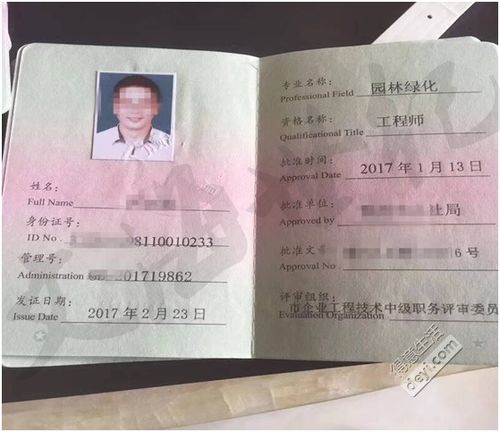 姓名:
Full Name
身份证号:
ID No. 98110010233
管理号:
Administration No. 201719862
发证日期:
Issue Date 2017年2月23日
专业名称:
Professional Field 园林绿化
资格名称:
Qualificational Title 工程师
批准时间:
Approval Date 2017年1月13日
批准单位:
Approved by 社局
批准文号:
Approval No. 6号
评审组织:
市企业工程技术中级职务评审委员
Evaluation Organization
得意生活
deyi.com